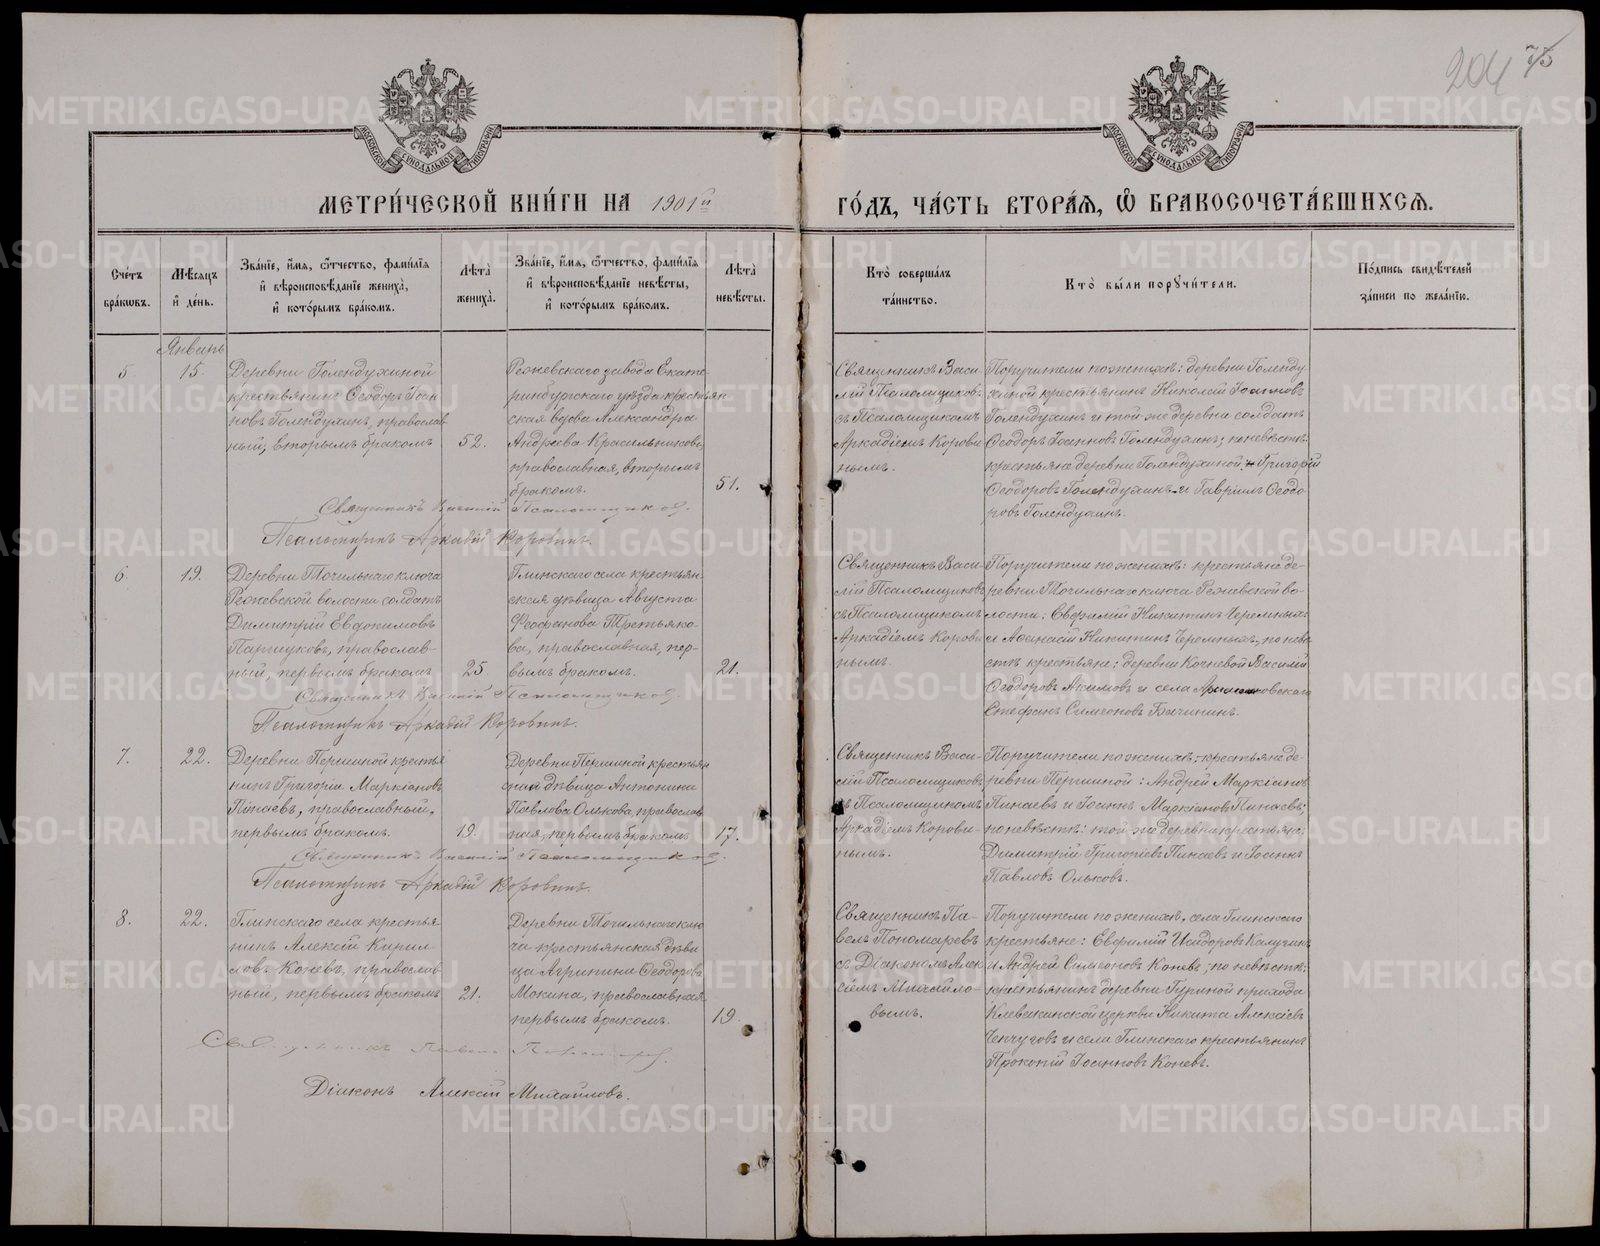 204 75
МОСКОВСКОЙ СѴНОДАЛЬНОЙ ТИПОГРАФІИ
МОСКОВСКОЙ СѴНОДАЛЬНОЙ ТИПОГРАФІИ
МЕТРИ́ЧЕСКОЙ КНИ́ГИ НА 1901й ГО́ДЪ, ЧА́СТЬ ВТОРА́Я, Ѡ БРАКОСОЧЕТА́ВШИХСЯ.
Сче́тъ
бра́ковъ.
Мѣ́сяцъ
и де́нь.
Зва́нїе, и́мя, ѻ́тчество, фами́лїя
и вѣроисповѣ́данїе жениха̀,
и кото́рымъ бра́комъ.
Лѣта̀
жениха̀.
Зва́нїе, и́мя, ѻ́тчество, фами́лїя
и вѣроисповѣ́данїе невѣ́сты,
и кото́рымъ бра́комъ.
Лѣта̀
невѣ́сты.
Кто̀ соверша́лъ
та́инство.
Кто̀ бы́ли порꙋчи́тели.
По́дпись свидѣ́телей
за́писи по жела́нїю.
Январь
5.
15.
Деревни Голендухиной
крестьянинъ Ѳеодоръ Іоан
новъ Голендухинъ, православ
ный, вторымъ бракомъ
52.
Режевскаго завода Екате
ринбургскаго уѣзда крестьян
ская вдова Александра
Андреева Красильникова,
православная, вторымъ
бракомъ.
51.
Священникъ Васи
лій Псаломщиковъ
съ Псаломщикомъ
Аркадіемъ Корови
нымъ.
Поручители по женихѣ: деревни Голенду
хиной крестьянинъ Николай Іоанновъ
Голендухинъ и той же деревни солдатъ
Ѳеодоръ Іоанновъ Голендухинъ; по невѣстѣ:
крестьяне деревни Голендухиной: Григорій
Ѳеодоровъ Голендухинъ и Гавріилъ Ѳеодо
ровъ Голендухинъ.
Священникъ Василій Псаломщиковъ.
Псаломщикъ Аркадій Коровинъ.
6.
19.
Деревни Точильнаго ключа
Режевской волости солдатъ
Димитрій Евдокимовъ
Паршуковъ, православ-
ный, первымъ бракомъ
25
Глинскаго села крестьян
ская дѣвица Августа
Ѳеофанова Третьяко-
ва, православная, пер-
вымъ бракомъ.
21.
Священникъ Васи-
лій Псаломщиковъ
съ Псаломщикомъ
Аркадіемъ Корови
нымъ.
Поручители по женихѣ: крестьяне де-
ревни Точильнаго ключа Режевской во-
лости: Евѳимій Никитинъ Черемныхъ
и Аѳанасій Никитинъ Черемныхъ, по невѣ
стѣ крестьяне: деревни Кочневой Василій
Ѳеодоровъ Акимовъ и села
Стефанъ Симеоновъ Бачининъ.
Священникъ Василій Псаломщиковъ.
Псаломщикъ Аркадій Коровинъ.
7.
22.
Деревни Першиной крестья
нинъ Григорій Маркіановъ
Пинаевъ, православный,
первымъ бракомъ.
19.
Деревни Першиной крестьян
ская дѣвица Антонина
Павлова Олькова, православ
ная, первымъ бракомъ
17.
Священникъ Васи-
лій Псаломщиковъ
съ Псаломщикомъ
Аркадіемъ Корови-
нымъ.
Поручители по женихѣ: крестьяне де-
ревни Першиной: Андрей Маркіановъ
Пинаевъ и Іоаннъ Маркіановъ Пинаевъ;
по невѣстѣ: той же деревни крестьяне:
Димитрій Григоріевъ Пинаевъ и Іоаннъ
Павловъ Ольковъ.
Священникъ Василій Псаломщиковъ.
Псаломщикъ Аркадій Коровинъ.
8.
22.
Глинскаго села крестья
нинъ Алексій Кирил-
ловъ Коневъ, православ
ный, первымъ бракомъ
21.
Деревни Точильнаго клю
ча крестьянская дѣви
ца Агрипина Ѳеодорова
Мокина, православная
первымъ бракомъ.
19.
Священникъ Па-
велъ Пономаревъ
съ Діакономъ Алек
сіемъ Михайло-
вымъ.
Поручители по женихѣ, села Глинскаго
крестьяне: Евѳимій Исидоровъ Калугинъ
и Андрей Симеоновъ Коневъ; по невѣстѣ:
крестьянинъ деревни Гуриной прихода
Клевакинской церкви Никита Алексіевъ
Ченчуговъ и села Глинскаго крестьянинъ
Прокопій Іоанновъ Коневъ.
Священникъ Павелъ Пономаревъ.
Діаконъ Алексій Михайловъ.
METRIKI.GASO-URAL.RU